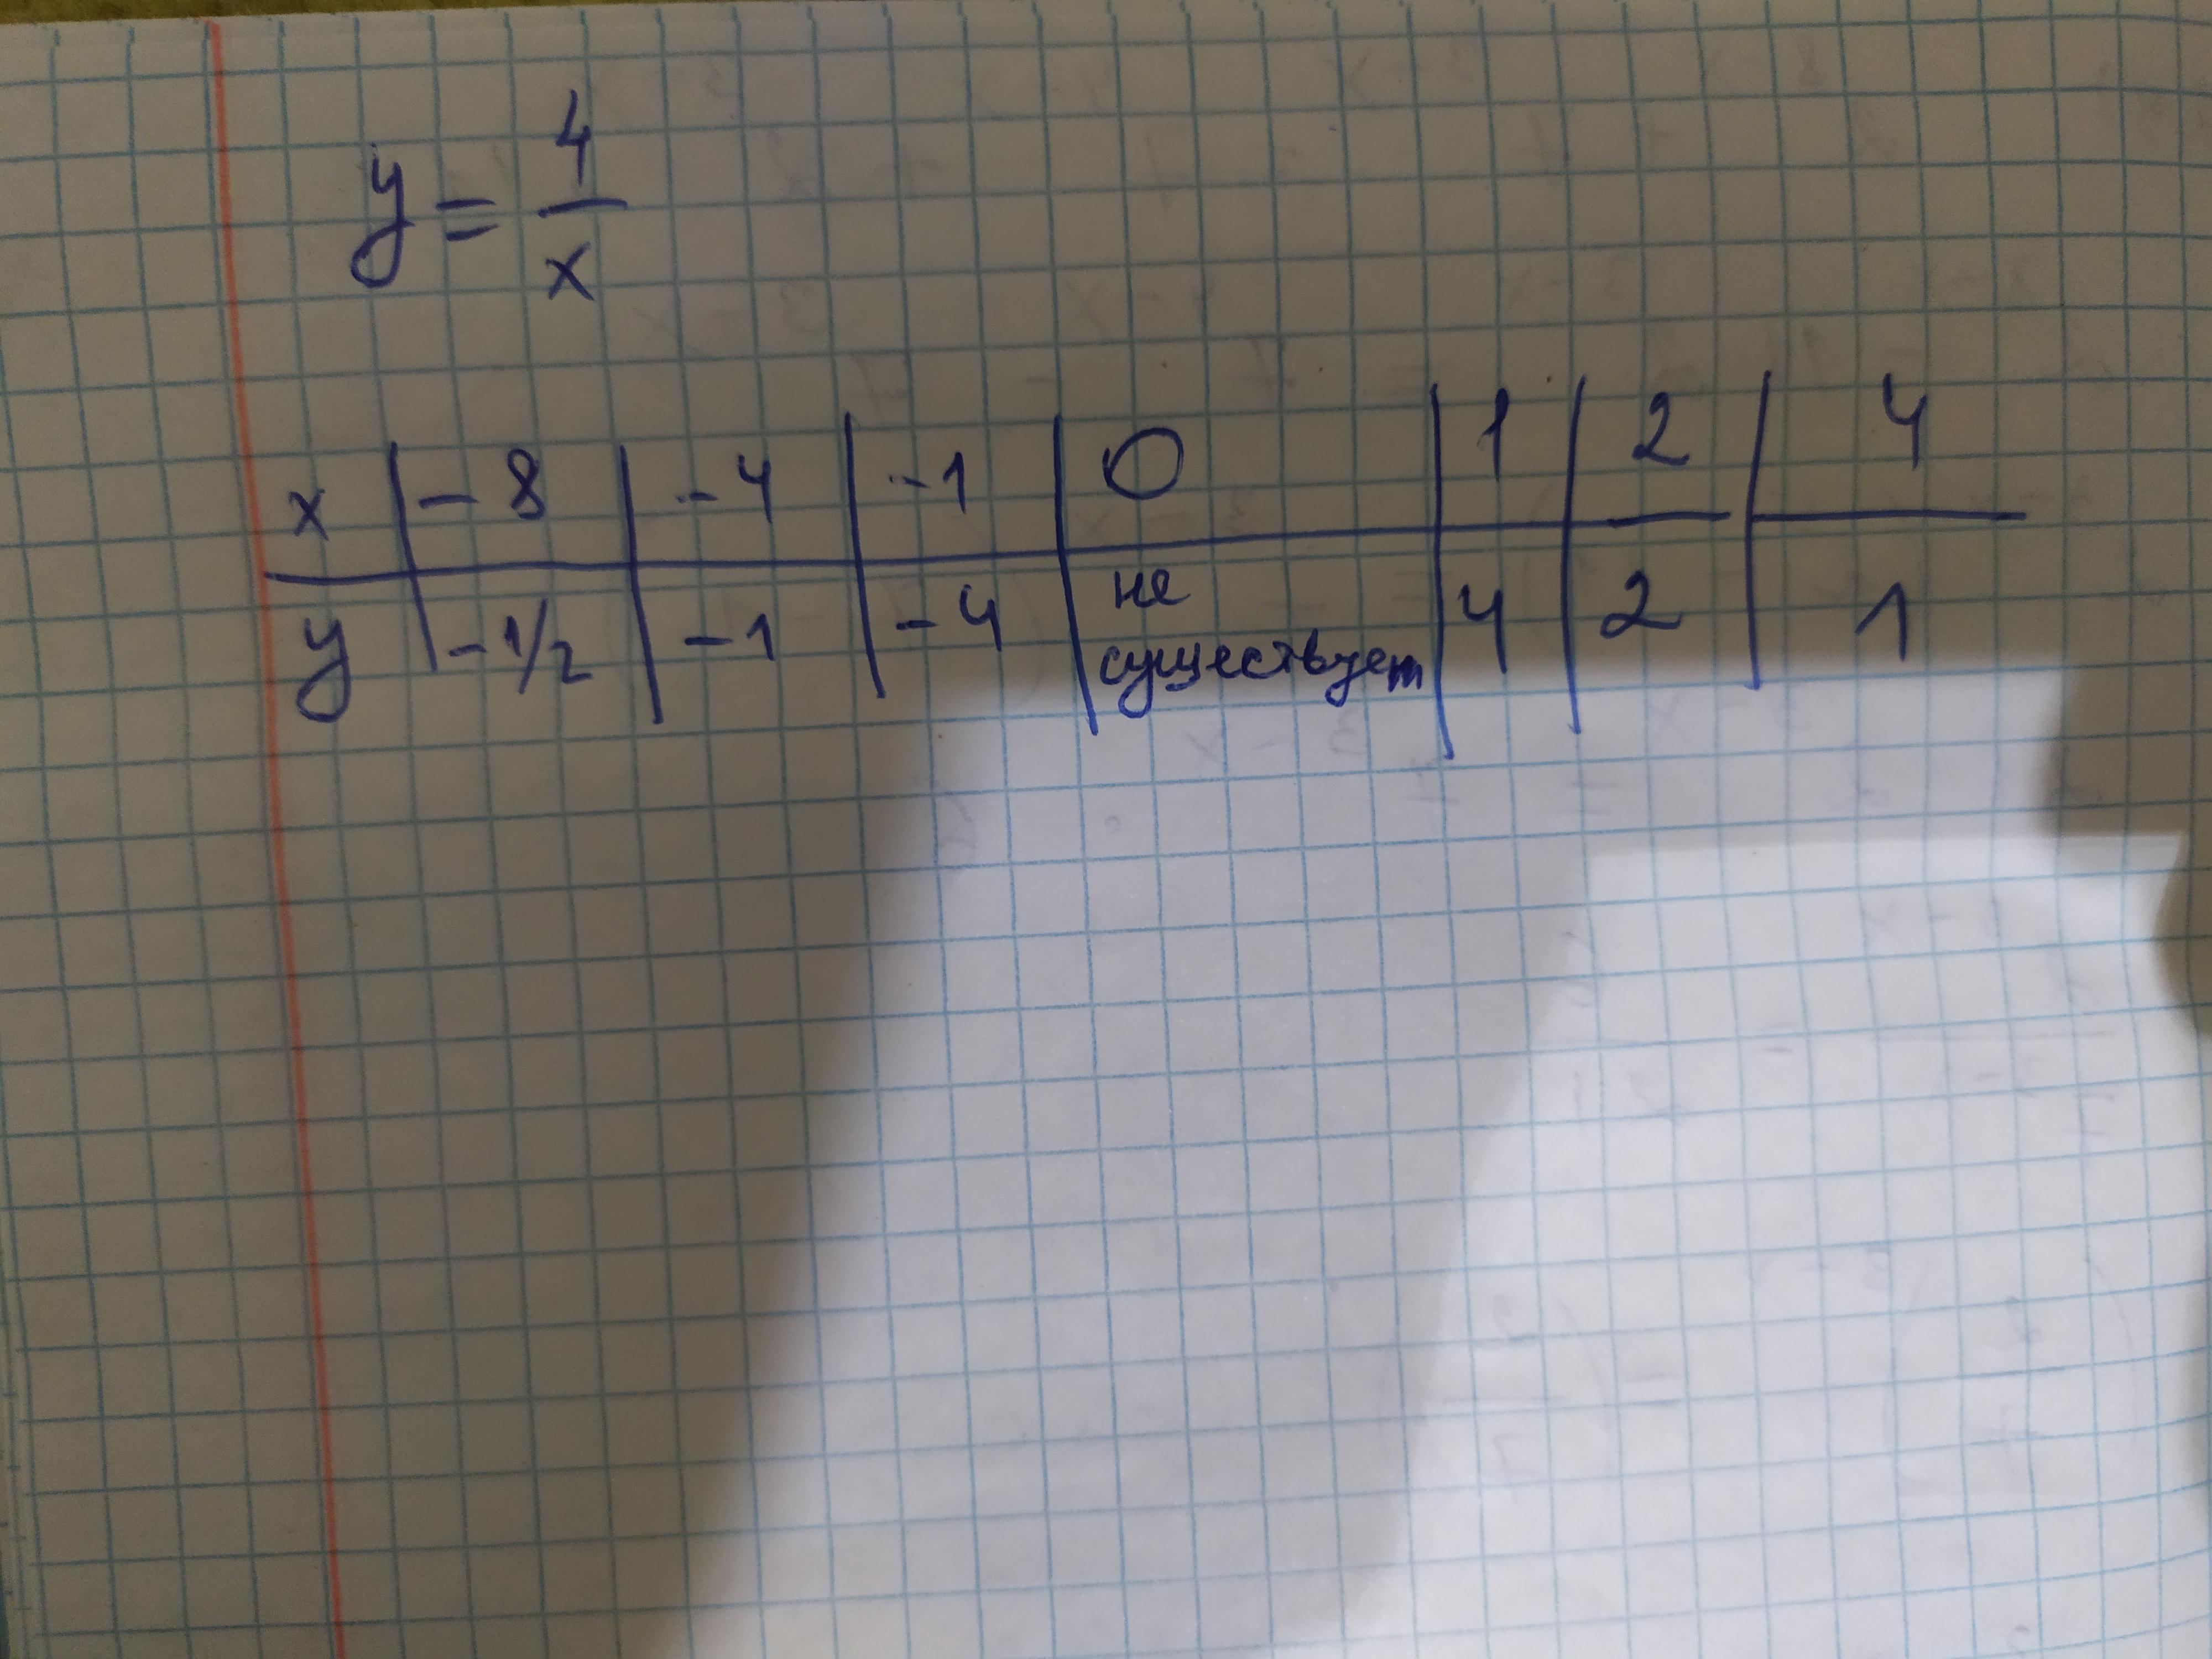 y = 4/x
x | -8 | -4 | -1 | 0 | 1 | 2 | 4
y | -1/2 | -1 | -4 | не существует | 4 | 2 | 1